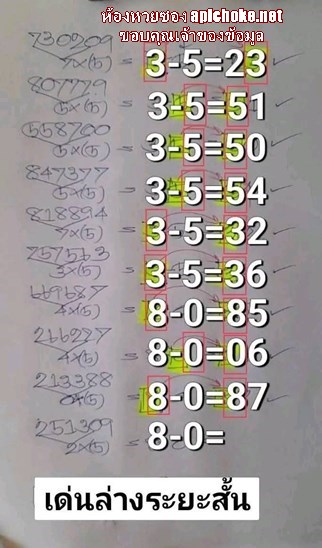 ห้องหวยซอง apichoke.net
ขอบคุณเจ้าของข้อมูล
730209
7×(5) = 3-5=23
807729
5×(5) = 3-5=51
558700
5×(5) = 3-5=50
847377
5×(5) = 3-5=54
818894
7×(5) = 3-5=32
757563
3×(5) = 3-5=36
669687
4×(5) = 8-0=85
266227
4×(5) = 8-0=06
213388
0×(5) = 8-0=87
251309
2×(5) = 8-0=
เด่นล่างระยะสั้น